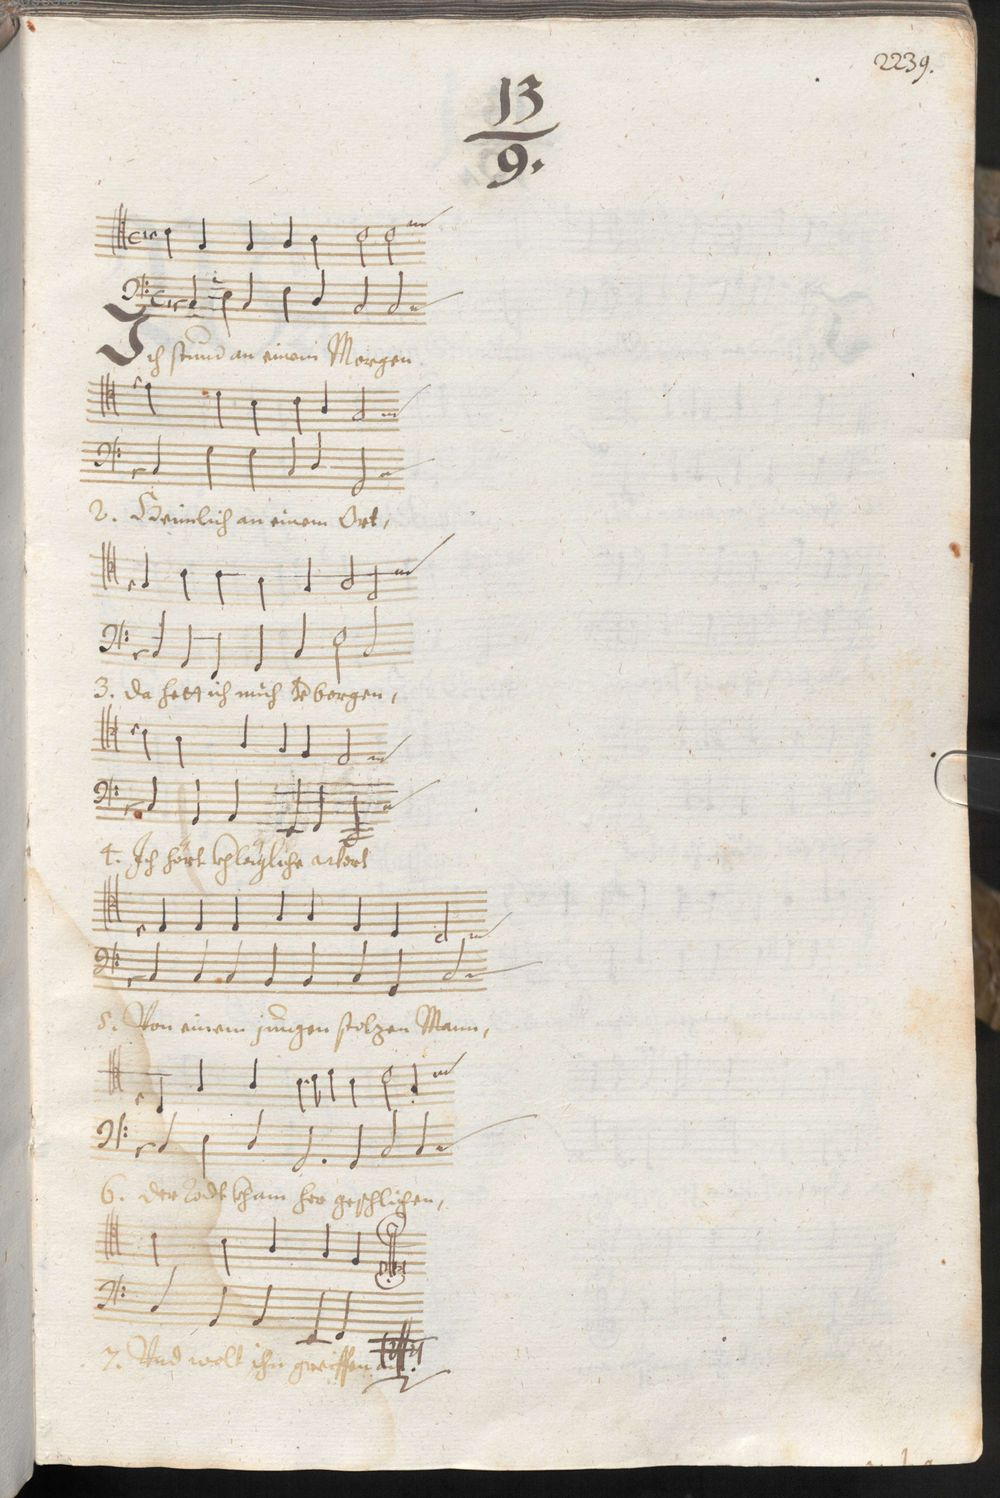 2239.
13
9.
Ich stund an einem Morgen
2. Heimlich an einem Ort,
3. da hett ich mich verborgen,
4. Ich hört khlegliche
5. Von einem jungen stolzen Mann,
6. der Todt kham her geschlichen,
7. Vnd wolt ihn greiffen an.